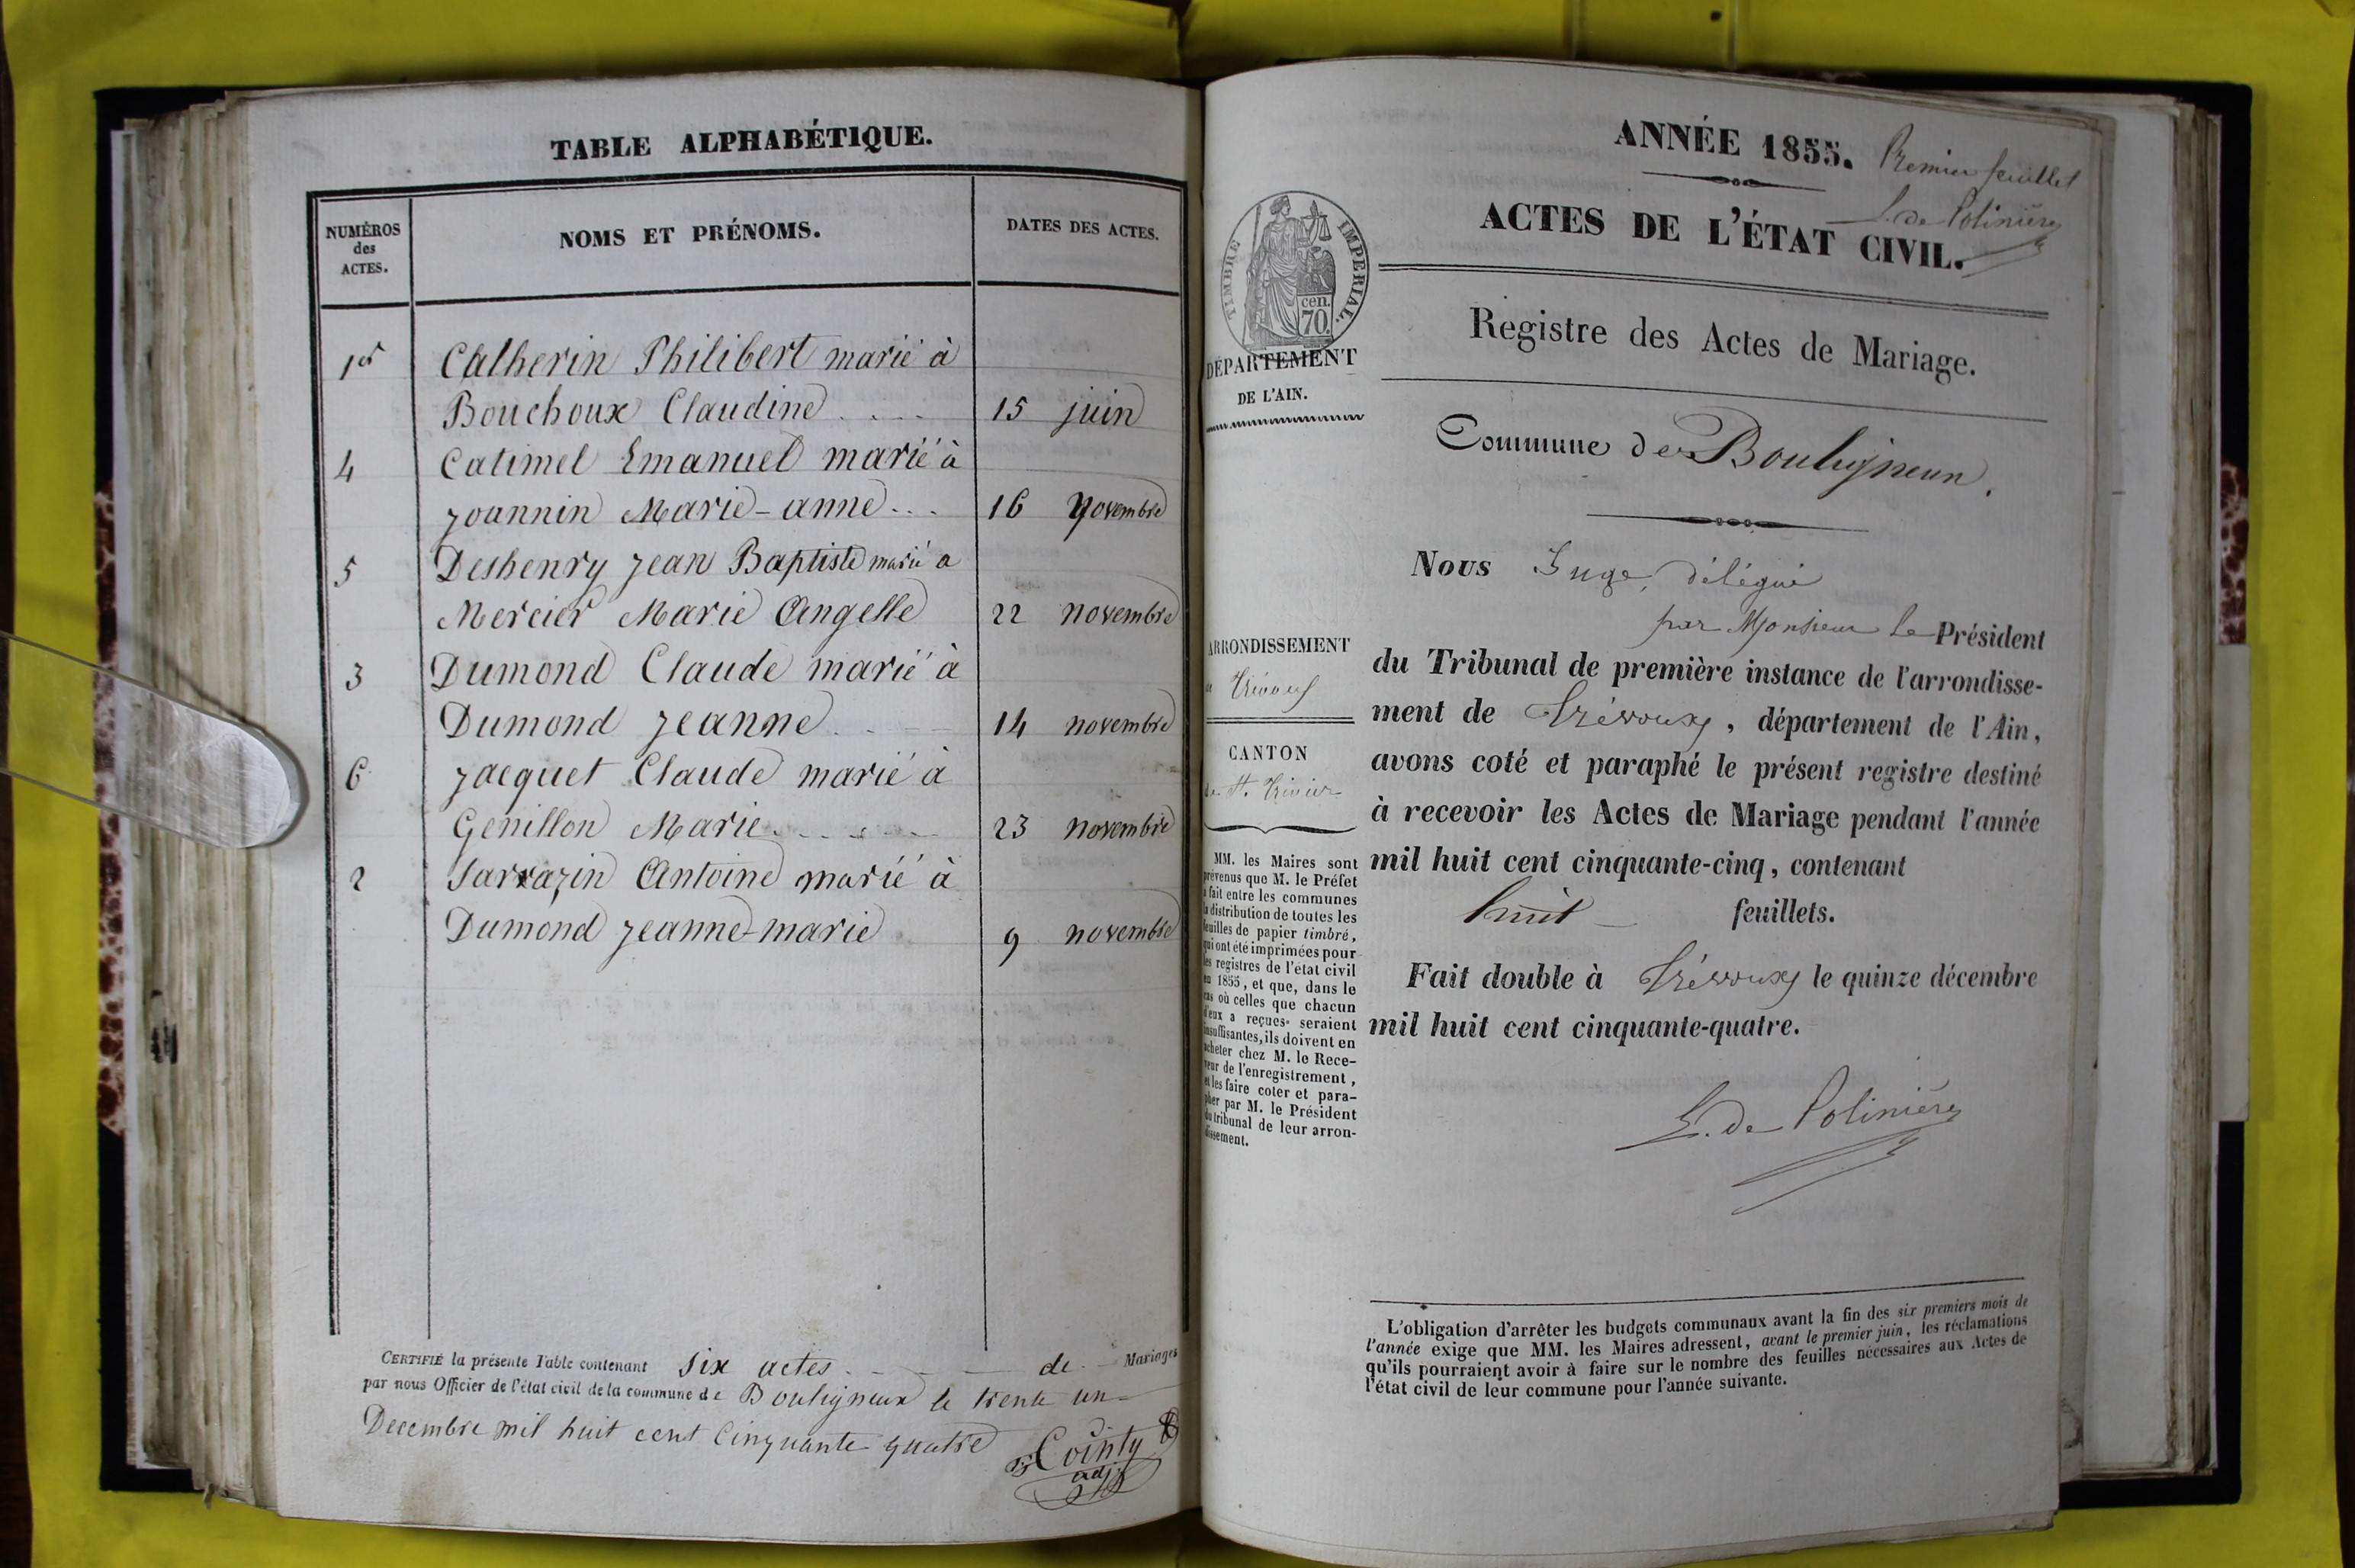 TABLE ALPHABÉTIQUE.
NUMÉROS des ACTES.
NOMS ET PRÉNOMS.
DATES DES ACTES.
1er Catherin Philibert marié à
Bouchoux Claudine 15 juin
4 Catimel Emanuel marié à
Joannin Marie-anne 16 Novembre
5 Deshenry Jean Baptiste marié a
Mercier Marie Angelle 22 novembre
3 Dumond Claude marié à
Dumond Jeanne 14 novembre
6 Jacquet Claude marié à
Genillon Marie 23 novembre
2 Sarrazin Antoine marié à
Dumond Jeanne-marie 9 novembre
CERTIFIÉ la présente Table contenant six actes de Mariages
par nous Officier de l'état civil de la commune de Bouligneux le trente un
Decembre mil huit cent Cinquante quatre
Cointy
adj
ANNÉE 1855.
Premier feuillet
L. de Polinière
ACTES DE L'ÉTAT CIVIL.
TIMBRE IMPERIAL.
cen.
70.
Registre des Actes de Mariage.
DÉPARTEMENT
DE L'AIN.
Commune de Bouligneux.
Nous Juge délégué
par Monsieur le Président
du Tribunal de première instance de l'arrondisse-
ment de Trévoux, département de l'Ain,
avons coté et paraphé le présent registre destiné
à recevoir les Actes de Mariage pendant l'année
mil huit cent cinquante-cinq, contenant
huit feuillets.
Fait double à Trévoux le quinze décembre
mil huit cent cinquante-quatre.
L. de Polinière
ARRONDISSEMENT
Trévoux
CANTON
de St. Trivier
MM. les Maires sont
prévenus que M. le Préfet
a fait entre les communes
la distribution de toutes les
feuilles de papier timbré,
qui ont été imprimées pour
les registres de l'état civil
en 1855, et que, dans le
cas où celles que chacun
d'eux a reçues seraient
insuffisantes, ils doivent en
acheter chez M. le Rece-
veur de l'enregistrement,
et les faire coter et para-
pher par M. le Président
du tribunal de leur arron-
dissement.
L'obligation d'arrêter les budgets communaux avant la fin des six premiers mois de
l'année exige que MM. les Maires adressent, avant le premier juin, les réclamations
qu'ils pourraient avoir à faire sur le nombre des feuilles nécessaires aux Actes de
l'état civil de leur commune pour l'année suivante.